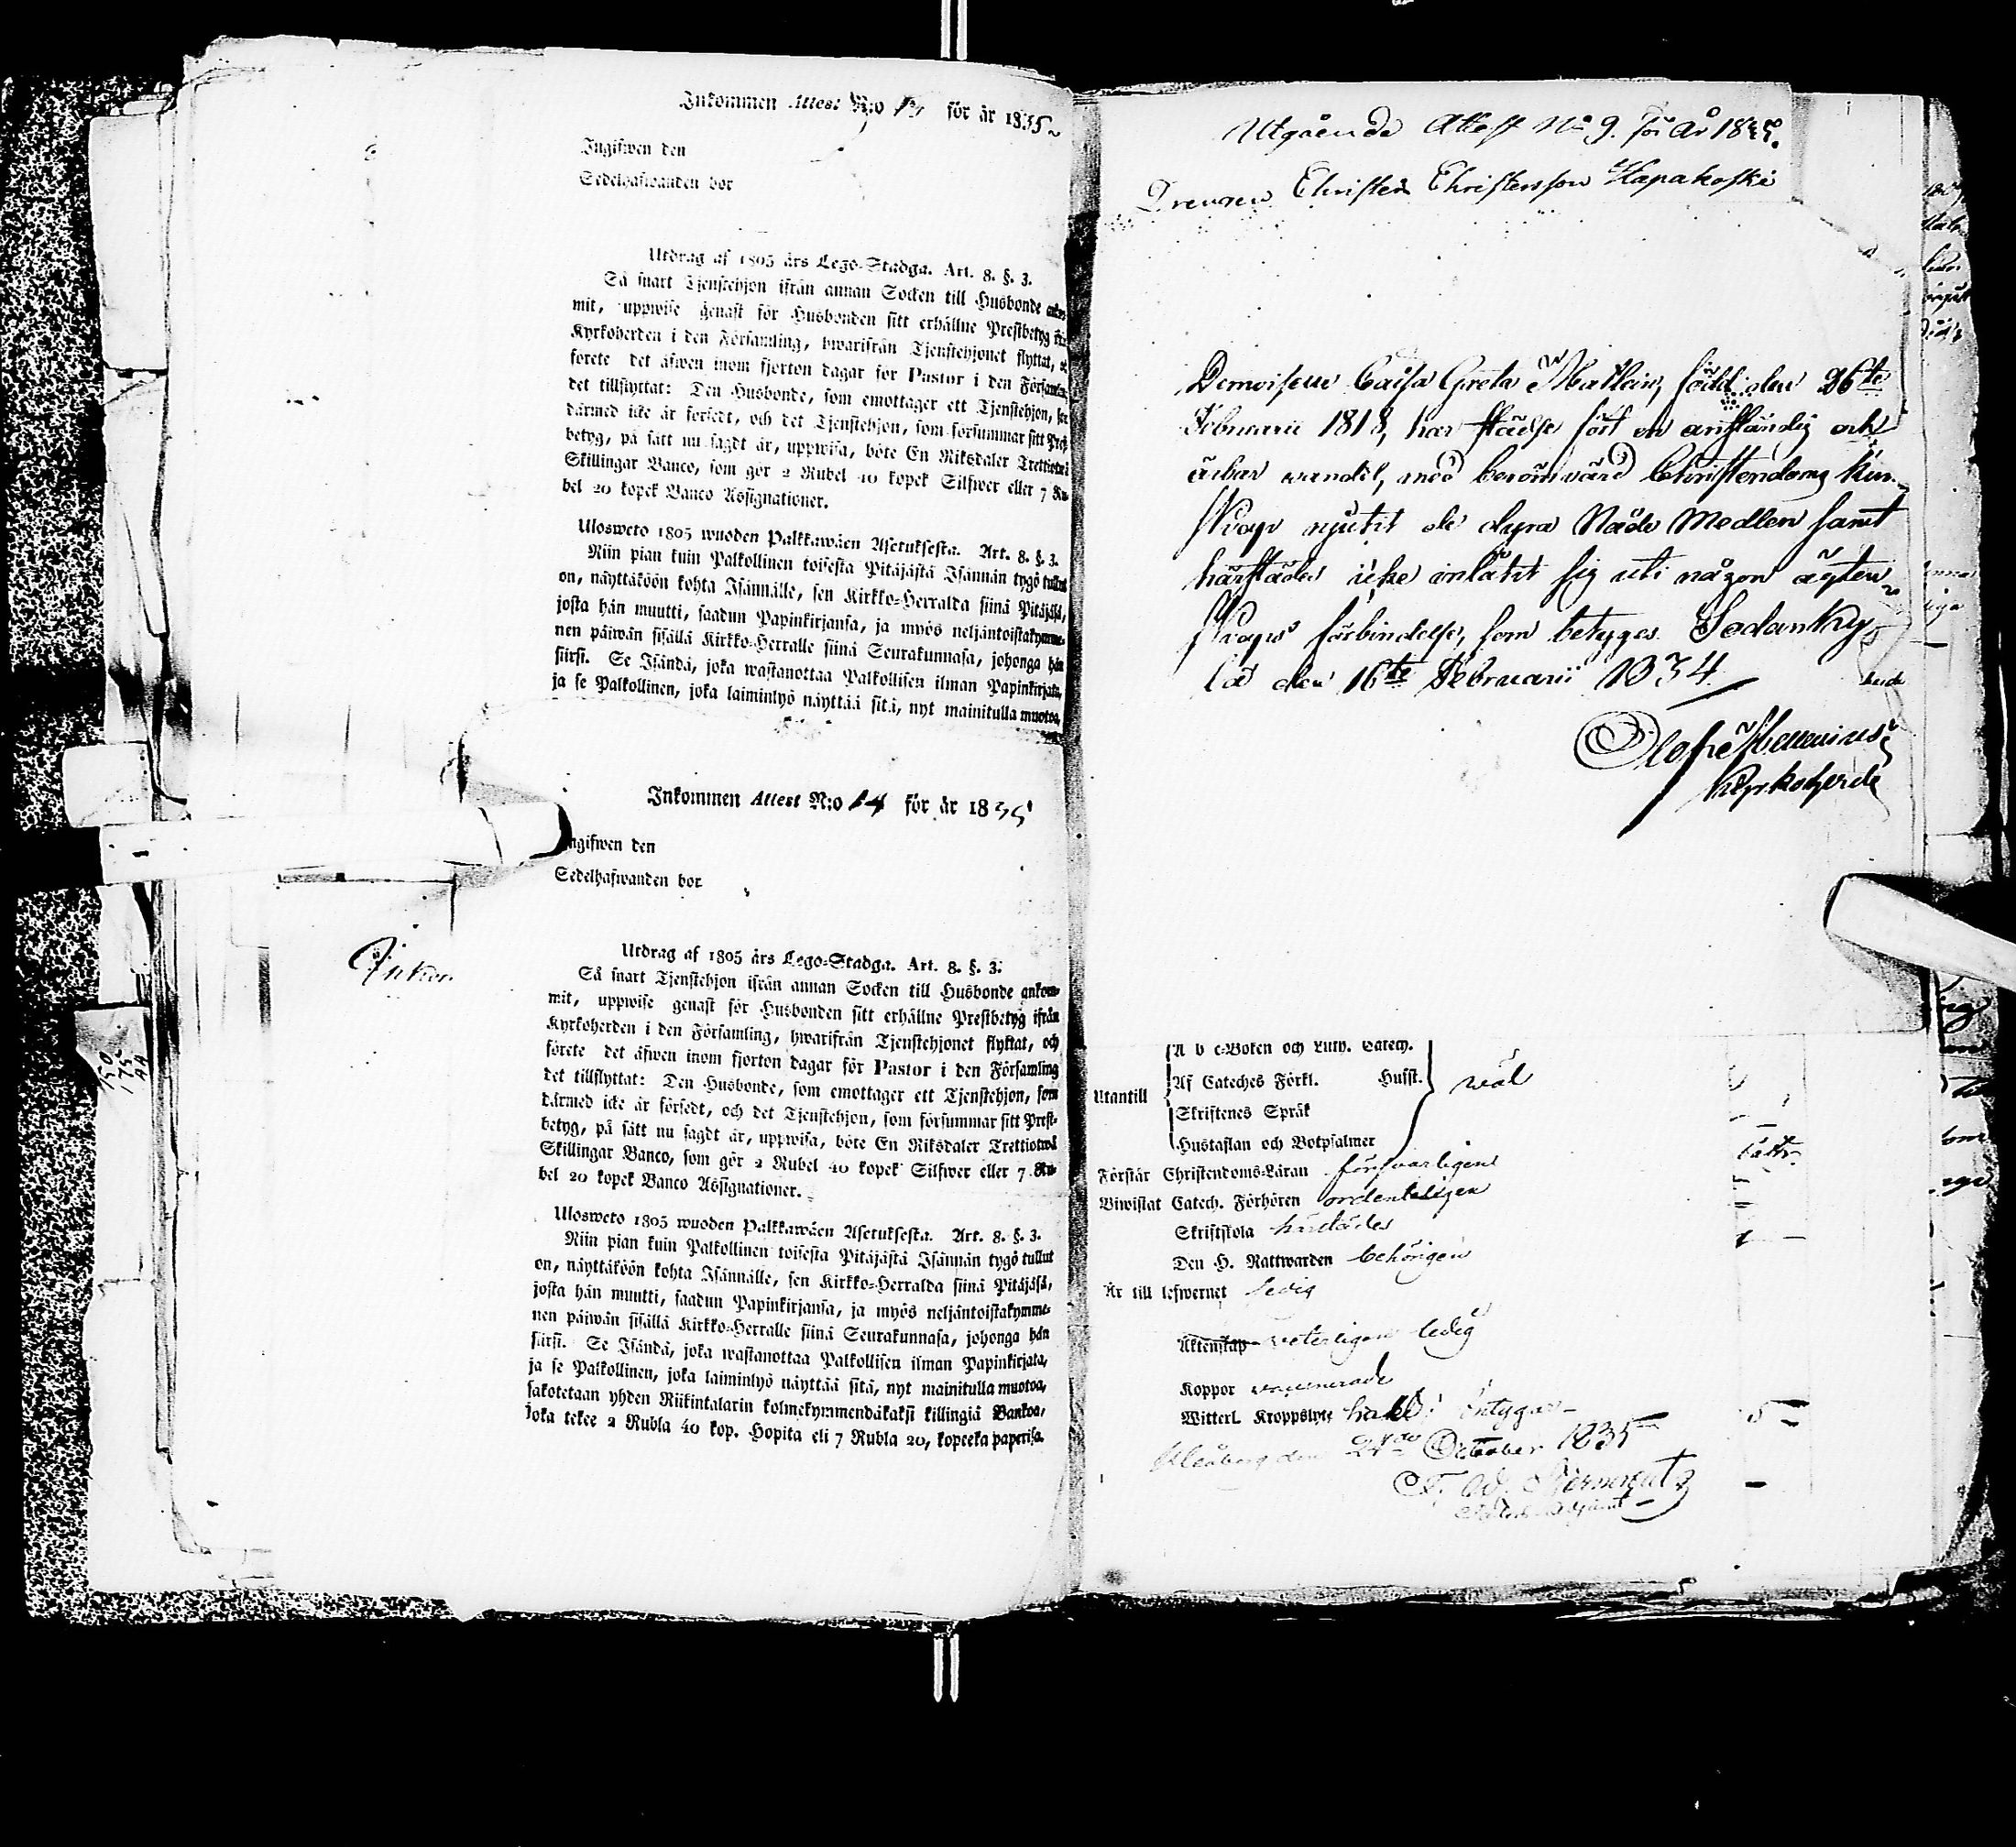 Inkommen Attest N:o för år 1835
Ingifwen den
Sedelhafwanden bor
Utdrag af 1805 års Lego-Stadga. Art. 8. §. 3.
Så snart Tjenstehjon ifrån annan Socken till Husbonde
mit, uppwise genast för Husbonden sitt erhållne Prestbetyg
Kyrkoherden i den Församling, hwarifrån Tjenstehjonet flyttat,
förete det äfwen inom fjorton dagar för Pastor i den
det tillflyttat: Den Husbonde, som emottager ett Tjenstehjon,
därmed icke är försedt, och det Tjenstehjon, som försummar sitt
betyg, på sätt nu sagdt är, uppwisa, böte En Riksdaler
Skillingar Banco, som gör 2 Rubel 40 kopek Silfwer eller 7
bel 20 kopek Banco Assignationer.
Ulosweto 1805 wuoden Palkkawäen Asetuksesta. Art. 8. §. 3.
Niin pian kuin Palkollinen toisesta Pitäjästä Isännän tygö tullut
on, näyttäköön kohta Isännälle, sen Kirkko-Herralda siinä Pitäjäsä,
josta hän muutti, saadun Papinkirjansa, ja myös neljäntoistakymme-
nen päiwän sisällä Kirkko-Herralle siinä Seurakunnasa, johonga hän
siirsi. Se Isändä, joka wastanottaa Palkollisen ilman Papinkirjata,
ja se Palkollinen, joka laiminlyö näyttää sitä, nyt mainitulla muotoa,
Inkommen Attest N:o 14 för år 1835
ngifwen den
Sedelhafwanden bor
Inkom.
Utdrag af 1805 års Lego-Stadga. Art. 8. §. 3.
Så snart Tjenstehjon ifrån annan Socken till Husbonde ankom-
mit, uppwise genast för Husbonden sitt erhållne Prestbetyg ifrån
Kyrkoherden i den Församling, hwarifrån Tjenstehjonet flyttat, och
förete det äfwen inom fjorton dagar för Pastor i den Församling
det tillflyttat: Den Husbonde, som emottager ett Tjenstehjon, som
därmed icke är försedt, och det Tjenstehjon, som försummar sitt Prest-
betyg, på sätt nu sagdt är, uppwisa, böte En Riksdaler Trettiotwå
Skillingar Banco, som gör 2 Rubel 40 kopek Silfwer eller 7 Ru-
bel 20 kopek Banco Assignationer.
Ulosweto 1805 wuoden Palkkawäen Asetuksesta. Art. 8. §. 3.
Niin pian kuin Palkollinen toisesta Pitäjästä Isännän tygö tullut
on, näyttäköön kohta Isännälle, sen Kirkko-Herralda siinä Pitäjäsä,
josta hän muutti, saadun Papinkirjansa, ja myös neljäntoistakymme-
nen päiwän sisällä Kirkko-Herralle siinä Seurakunnasa, johonga hän
siirsi. Se Isändä, joka wastanottaa Palkollisen ilman Papinkirjata,
ja se Palkollinen, joka laiminlyö näyttää sitä, nyt mainitulla muotoa,
sakotetaan yhden Riikintalarin kolmekymmendäkaksi killingiä Bankoa,
joka tekee 2 Rubla 40 kop. Hopita eli 7 Rubla 20, kopeeka paperisa.
150
175
AA
Utgående Attest No 9. för år 1835.
Drengen Christer Christersson Hapakoski
Demoiselle Caisa Greta Matlein, född den 26te
Februarii 1818, har städse fört en anständig och
ärbar wandel, med berömwärd Christendoms Kun-
skap njutit de dyra Nåde Medlen samt
härstädes icke inlåtit sig uti någon ägten-
skaps förbindelse, som betygas. Sodanky-
lä den 16te Februarii 1834
Kyrkoherde
A b c-Boken och Luth. Catech.
Utantill
Af Cateches Förkl. Husst. wäl
Skriftenes Språk
Hustaflan och Botpsalmer
Förstår Christendoms-Läran förswarligen
Biwistat Catech. Förhören ordenteligen
Skriftskola härstädes
Den H. Nattwarden behörigen
Är till lefwernet ledig
Äktenskap veterligen ledig
Koppor vaccinerade
Witterl. Kroppslyte intygar
Uleåborg den October 1835